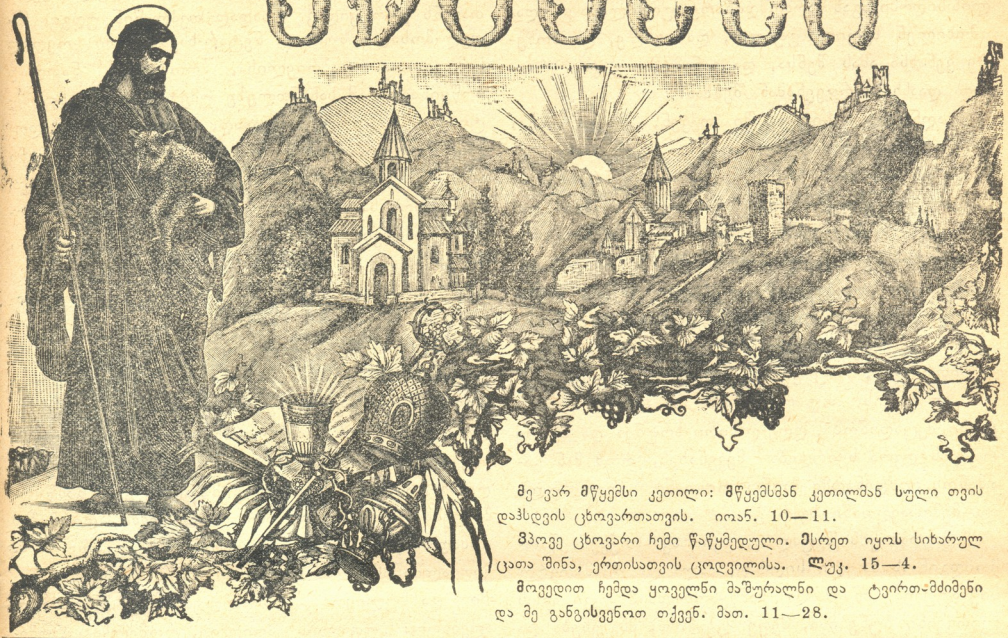 მე ვარ მწყემსი კეთილი: მწყემსმან კეთილმან სული თვის
დაჰსდვის ცხოვართათვის. იოან. 10—11.
ვპოვე ცხოვარი ჩემი წაწყმედული. ესრეთ იყოს სიხარულ
ცათა შინა, ერთისათვის ცოდვილისა. ლუკ. 15—4.
მოვედით ჩემდა ყოველნი მაშურალნი და ტვირთ-მძიმენი
და მე განგისვენოთ თქვენ. მათ. 11—28.